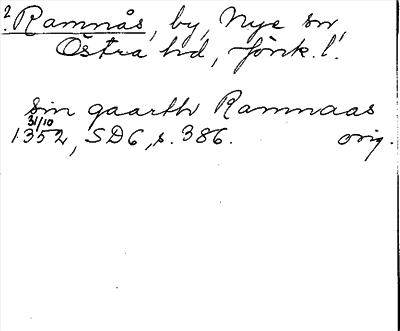 ? Ramnås, by, Nye sn,
Östra hd, Jönk. l.
sin gaarth Ramnaas
31/10
1352, SD6, s. 386. orig.